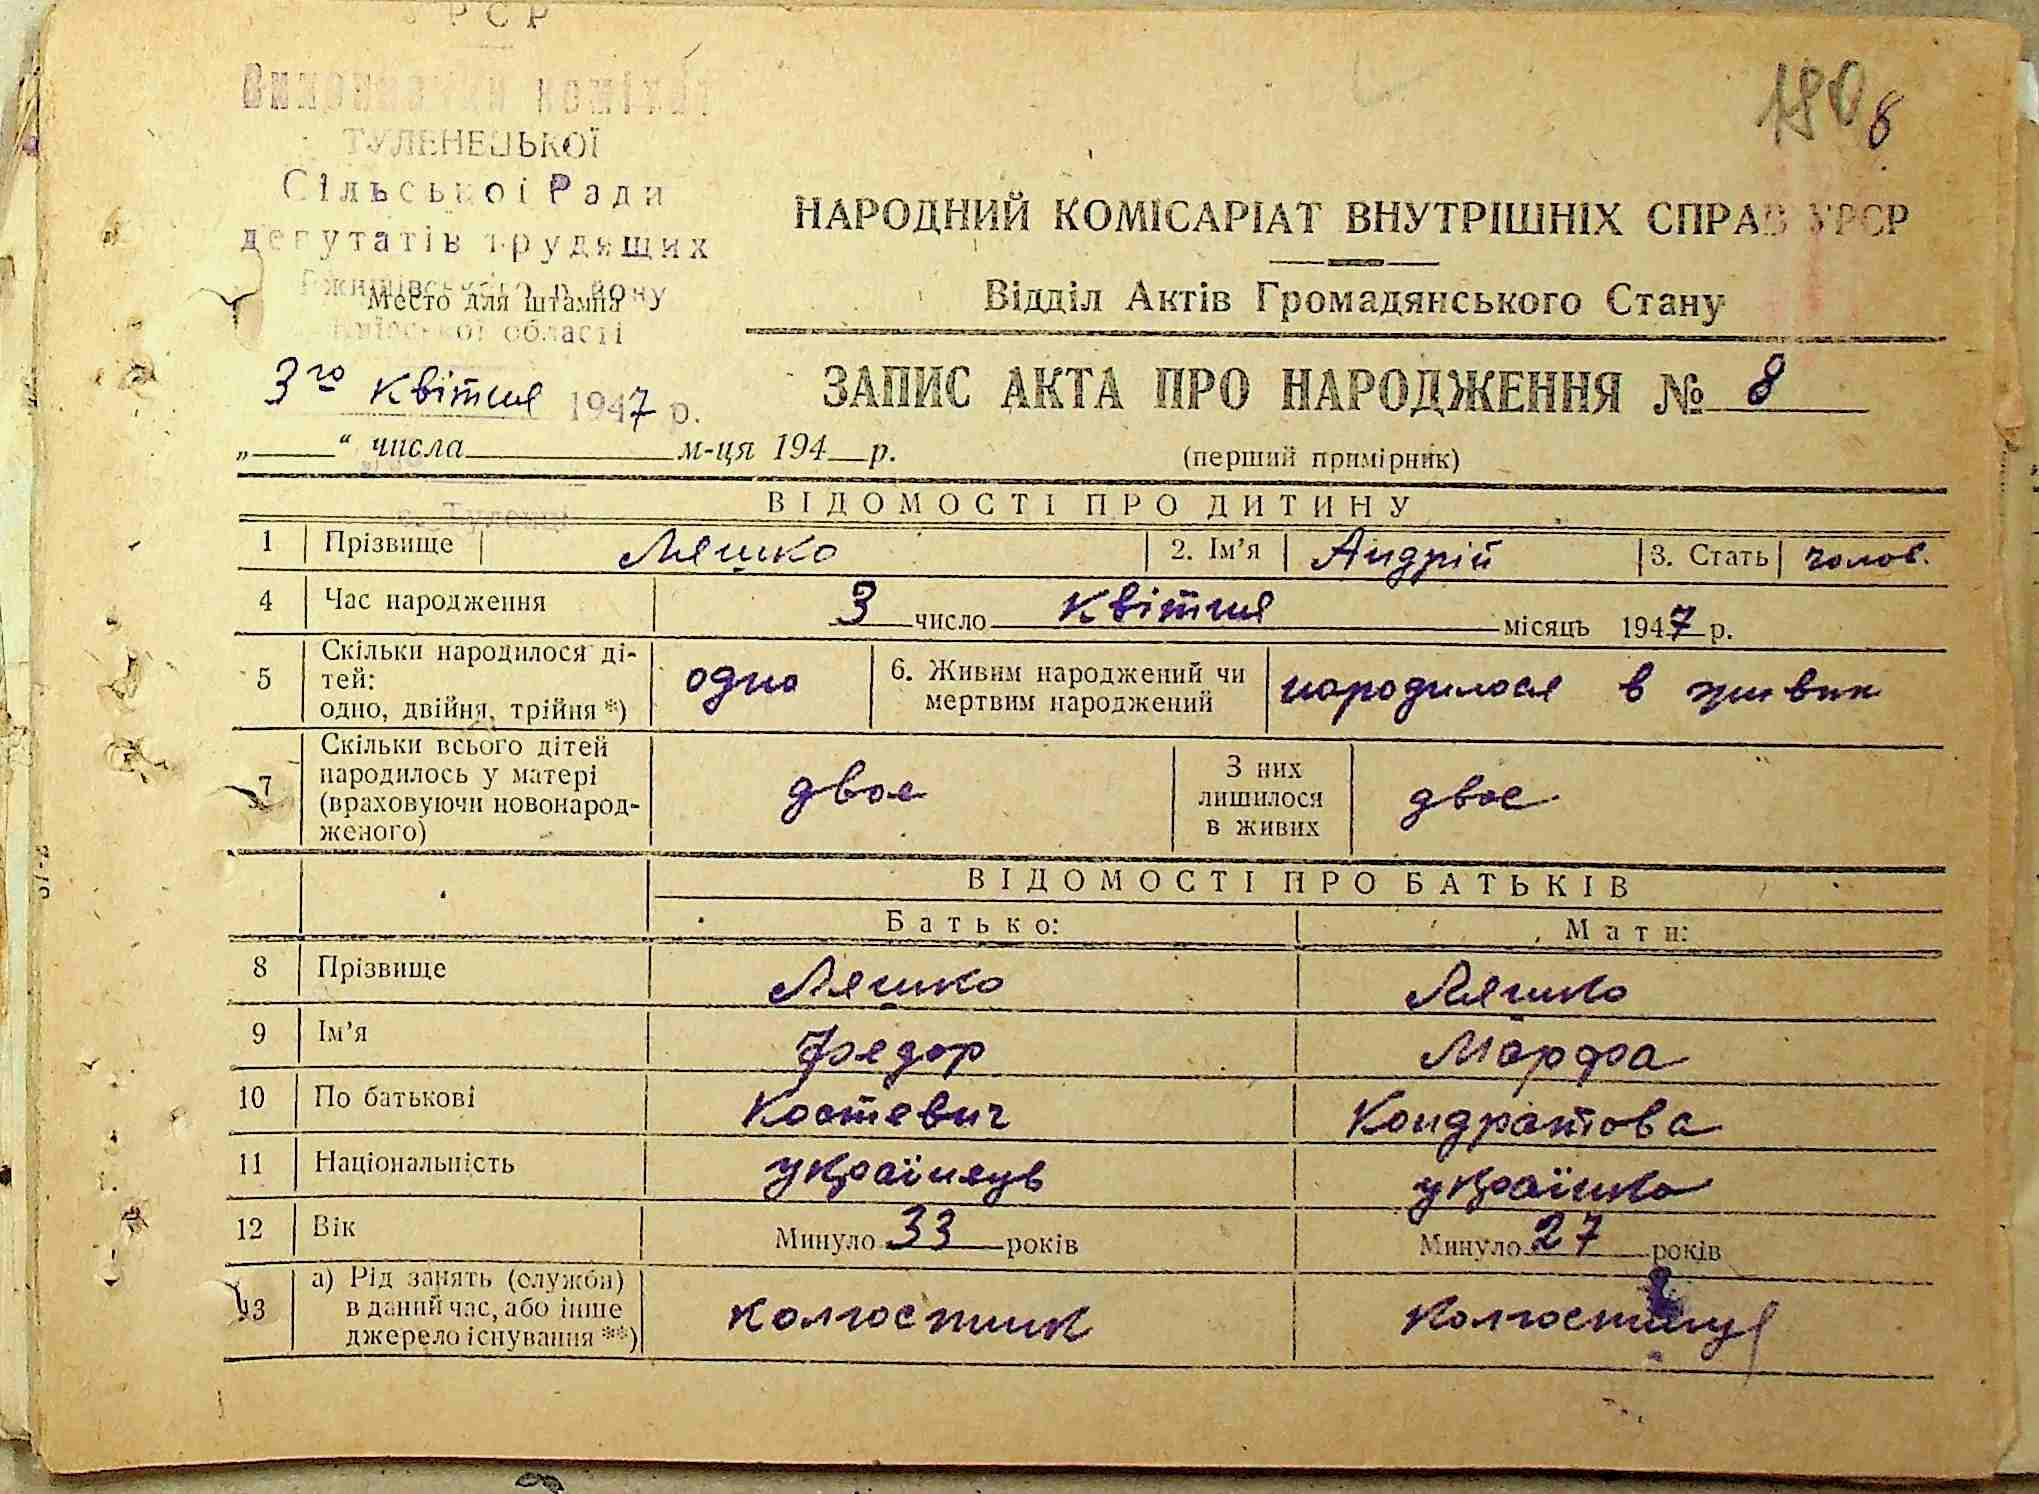 УРСР
Виконавчий комітет
ТУЛЕНЕЦЬКОЇ
Сільської Ради
депутатів трудящих
Ржищівського р-вону
Київської області
Место для штампа
180
8
НАРОДНИЙ КОМІСАРІАТ ВНУТРІШНІХ СПРАВ УРСР
Відділ Актів Громадянського Стану
3го квітня 1947 р.
ЗАПИС АКТА ПРО НАРОДЖЕННЯ № 8
„ “ числа м-ця 194 р.
(перший примірник)
с. Туленці
ВІДОМОСТІ ПРО ДИТИНУ
1 Прізвище Ляшко 2. Ім’я Андрій 3. Стать чолов.
4 Час народження 3 число квітня місяць 1947 р.
5 Скільки народилося ді-
тей:
одно, двійня, трійня *) одно 6. Живим народжений чи
мертвим народжений народилося в живих
7 Скільки всього дітей
народилось у матері
(враховуючи новонарод-
женого) двоє З них
лишилося
в живих двоє
ВІДОМОСТІ ПРО БАТЬКІВ
Батько: Мати:
8 Прізвище Ляшко Ляшко
9 Ім’я Федор Марфа
10 По батькові Костевич Кондратова
11 Національність українець українка
12 Вік Минуло 33 років Минуло 27 років
13 а) Рід занять (служби)
в даний час, або інше
джерело існування **) колгоспник колгоспниця